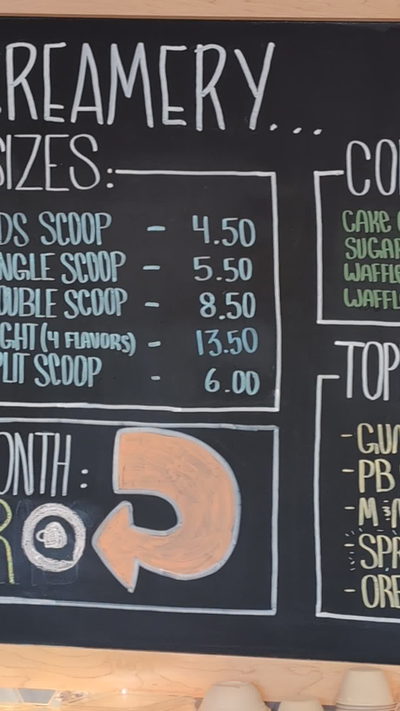 CREAMERY...
SIZES:
DS SCOOP - 4.50
NGLE SCOOP - 5.50
OUBLE SCOOP - 8.50
GHT (4 FLAVORS) - 13.50
PLIT SCOOP - 6.00
ONTH:
R
CO
CAKE
SUGAR
WAFFLE
WAFFL
TOP
- GU
- PB
- M&M
- SPR
- ORE